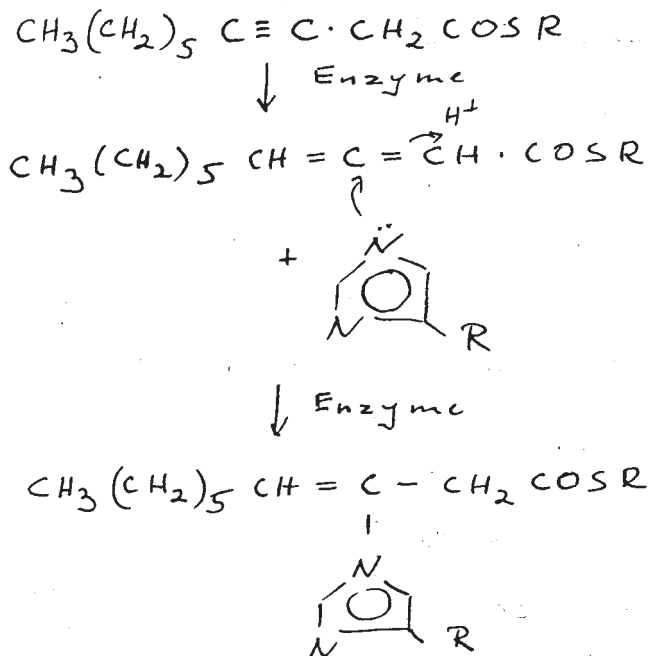 CH₃(CH₂)₅ C≡C·CH₂COSR
↓ Enzyme
H⁺
CH₃(CH₂)₅ CH=C=CH·COSR
+
N̈
N
R
↓ Enzyme
CH₃(CH₂)₅ CH=C-CH₂COSR
N
N
R